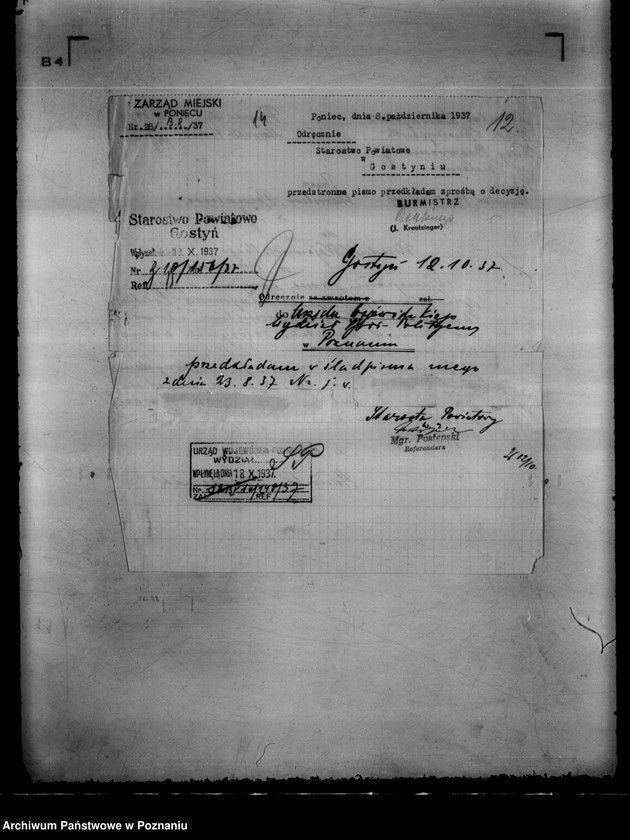 B4
ZARZĄD MIEJSKI
w PONIECU
Nr.28/ /37
14
Poniec, dnia 8.października 1937
12.
Odręcznie
Starostwo Powiatowe
w
Gostyniu
przedstronne pismo przedkładam zprośbą o decyzję.
BURMISTRZ
(J. Kreutzinger)
Starostwo Powiatowe
Gostyń
X. 1937
Nr.
Ref.
Gostyń 12.10.37.
Odręcznie za zwrotem o zał.
do Urzędu Wojewódzkiego
Wydział Społ. Polityczny
w Poznaniu
przedkładam w ślad pisma mego
z dnia 23.8.37 Nr. j. w.
Starosta Powiatowy
Mgr. Postępski
Referendarz
URZĄD WOJEWÓDZKI
WYDZIAŁ
WPŁYNĘŁO DNIA 18 X. 1937.
Nr. /37
ZAŁ. REF.
Archiwum Państwowe w Poznaniu